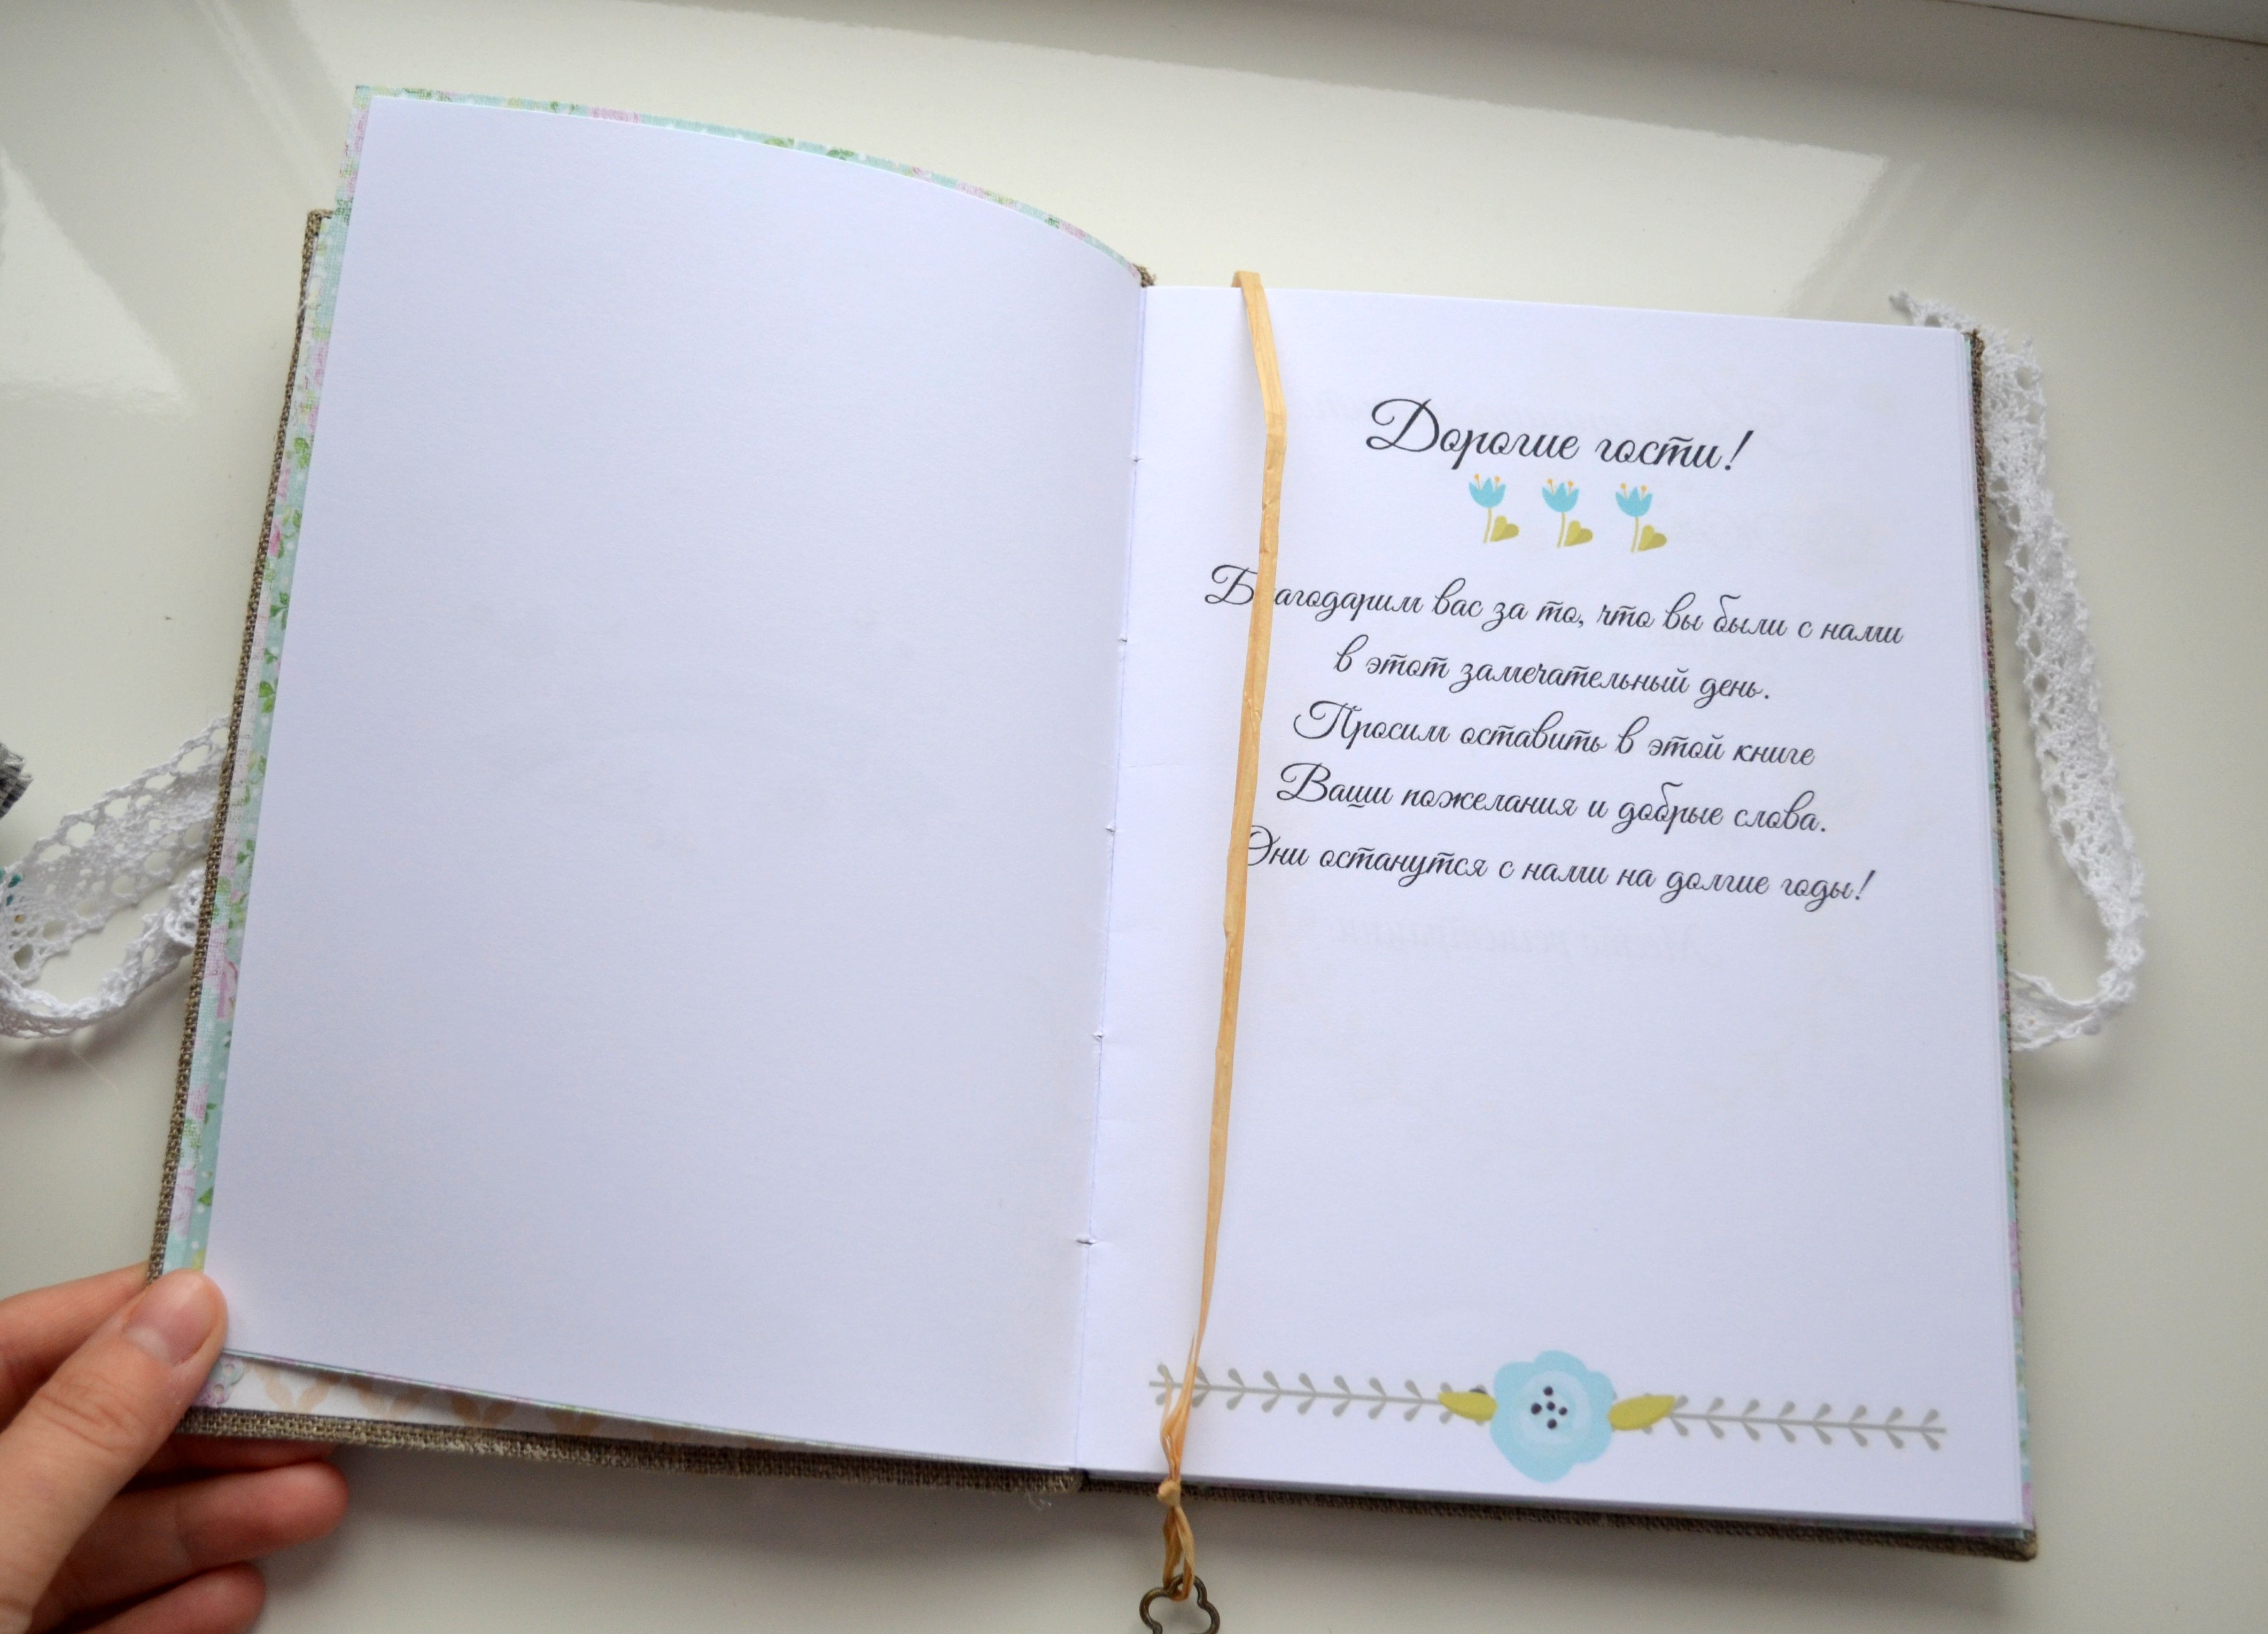 Дорогие гости!
Благодарим вас за то, что вы были с нами
в этот замечательный день.
Просим оставить в этой книге
Ваши пожелания и добрые слова.
Они останутся с нами на долгие годы!